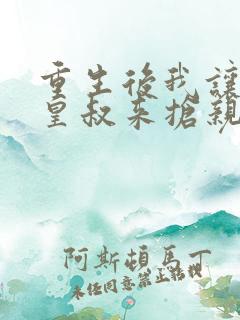 重生後我讓
皇叔来搶親
阿斯頓馬丁
未经同意禁止转载